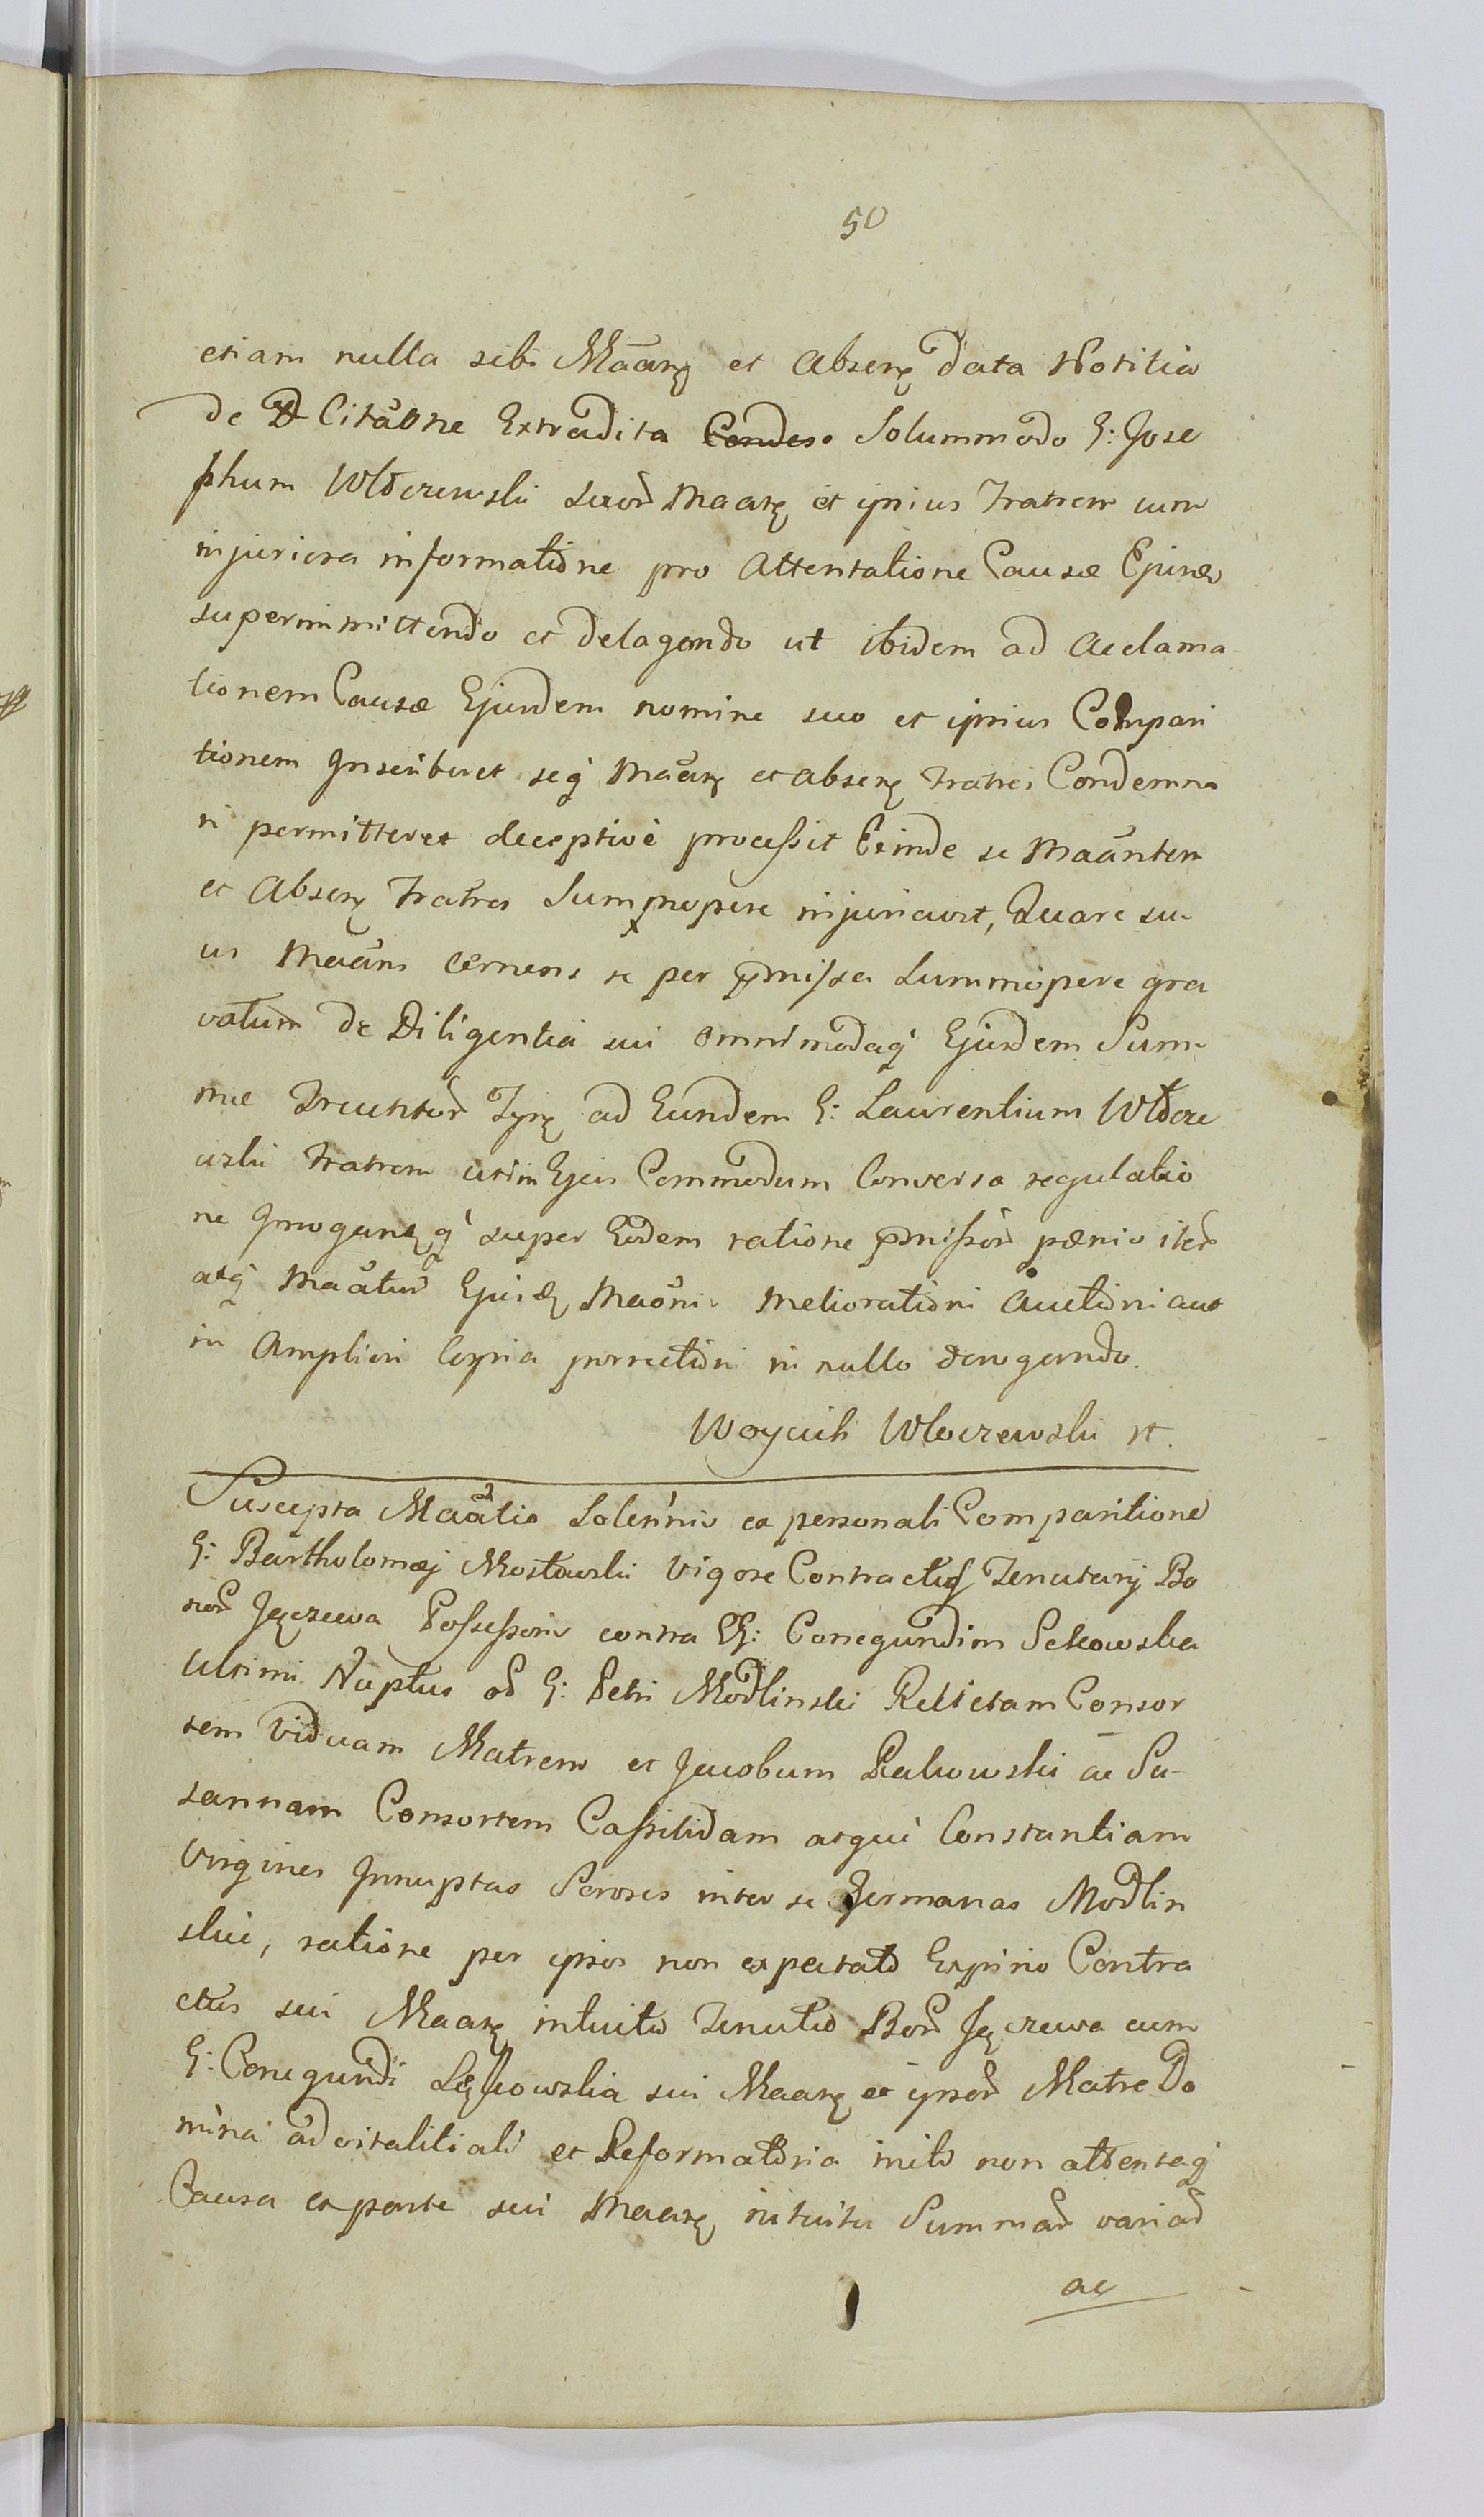 50
etiam nulla sibi Maãnꝫ et Absenꝫ data Notitia
de Citãone Extradita Condeso Solummodo G: Jose
phum Włoczewski Suoꝝ Maanꝫ et ipsius Fratrem cum
injuriosa informatione pro Attentatione Causæ Ejusdꝫ
superimmittendo et delagando ut ibidem ad Acclama
tionem Causæ Ejusdem nomine suo et ipsius Compari
tionem Inscriberet seq̃ Maãnꝫ et absenꝫ Fratres Condemna
ri permitteret deceptivè processit Exinde se Maãntem
et Absenꝫ Fratres Summopere injuriavit, Quare su-
us Maãns cernens se per p̃missa Summopere gra
vatum de Diligentia sui omnimodaq̃ Ejusdem Sum-
mæ ad Eundem G: Laurentium Włocze
wski Fratrem uti in Ejus Commodum Conversa regulatio
ne q̃ super Eodem ratione p̃missoꝝ pænis iteꝝ
atq̃ Maãtur Ejusdꝫ Maõni Melioratiõni Auctiõni aut
in Ampliori Copia porrectiõni in nullo derogando.
Woyciech Włoczewski
Suscepta Maãtio Solennis ex personali Comparitione
G: Bartholomæj Mostowski Vigore Contractus Tenutarij Bo
noꝝ Jęczewa Possessoris contra GG: Conegundim Sękowska
Ultimi Nuptus oꝺ G: Petri Modlinski Relictam Consor
tem Viduam Matrem et Jacobum Rakowski ac Su-
sannam Consortem Cassildam atque Constantiam
Virgines Innuptas Sorores inter se Germanas Modlin
skie, ratione per ipsos non expectato Expirio Contra
ctus sui Maanꝫ intuitu Tenutæ Bonꝝ Jęczewa cum
G: Conegundi Sękowska sui Maanꝫ et ipsoꝝ Matre Do
mina advitalitiali et Reformatoria inito non attentaq̃
Causa ex parte sui Maanꝫ intuitu Summaꝝ variaꝝ
ac